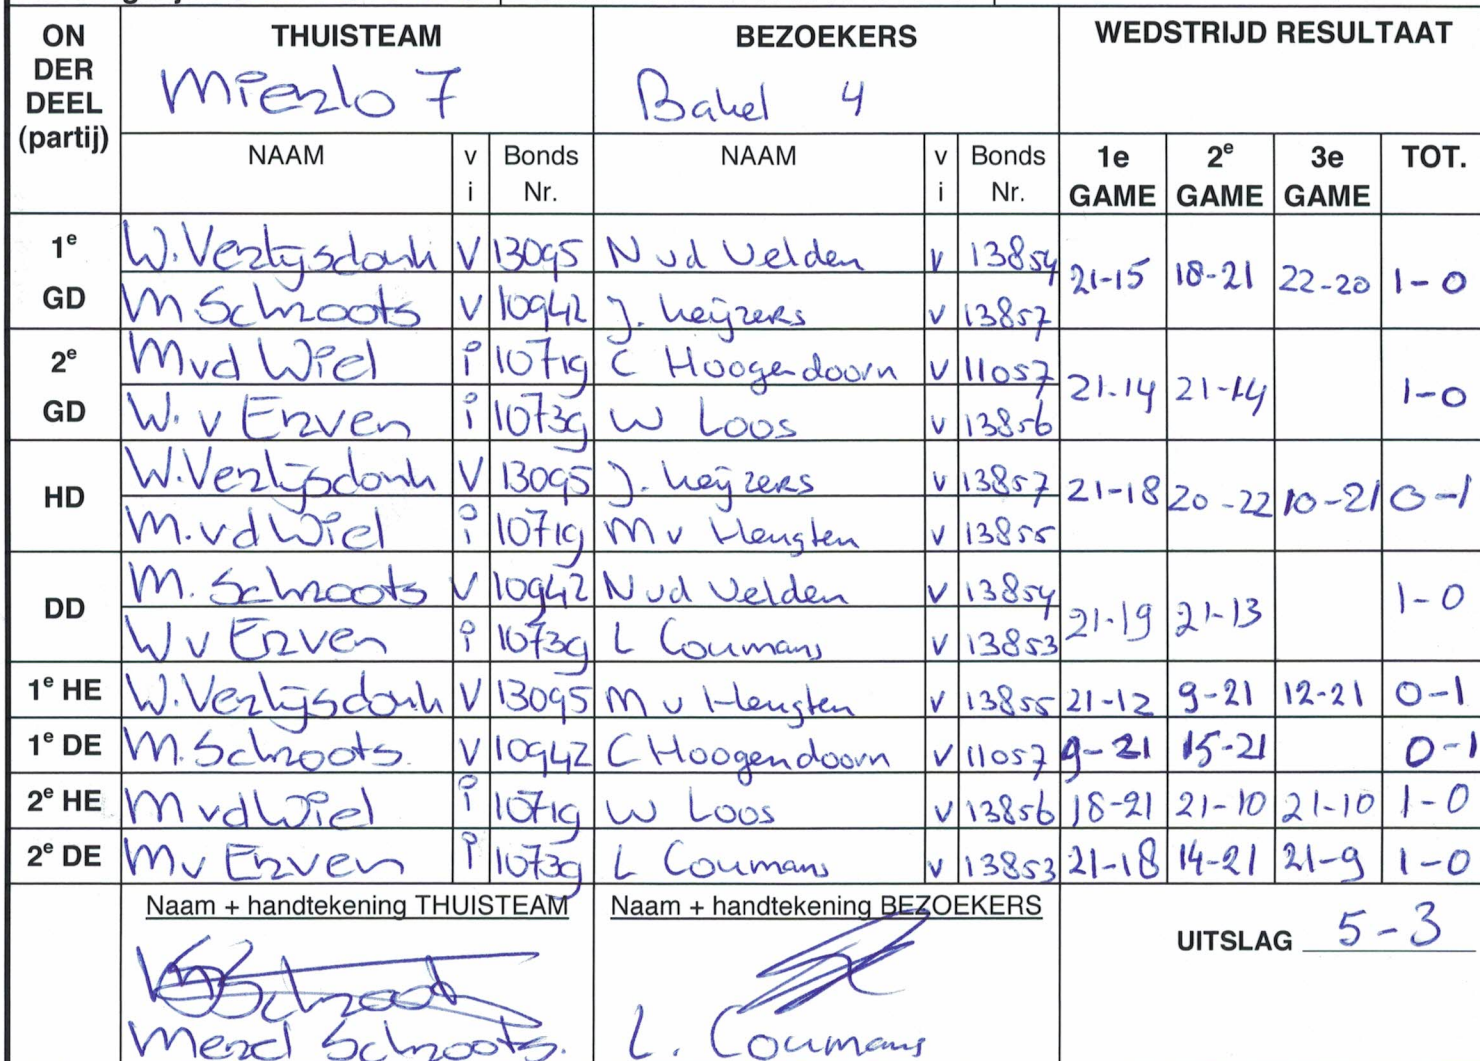 ON DER DEEL (partij) THUISTEAM BEZOEKERS WEDSTRIJD RESULTAAT
Mierlo 7 Bakel 4
NAAM v i Bonds Nr. NAAM v i Bonds Nr. 1e GAME 2e GAME 3e GAME TOT.
1e GD W. Verlijsdonk V 13095 N vd Velden v 13854 21-15 18-21 22-20 1-0
M Schroots V 10942 J. Keijzers v 13857
2e GD M vd Wiel i 10719 C Hoogendoorn v 11057 21-14 21-14 1-0
W. v Erven i 10739 W Loos v 13856
HD W. Verlijsdonk V 13095 J. Keijzers v 13857 21-18 20-22 10-21 0-1
M. vd Wiel i 10719 M v Heugten v 13855
DD M. Schroots V 10942 N vd Velden v 13854 21-19 21-13 1-0
W v Erven i 10739 L Coumans v 13853
1e HE W. Verlijsdonk V 13095 M v Heugten v 13855 21-12 9-21 12-21 0-1
1e DE M. Schroots. V 10942 C Hoogendoorn v 11057 9-21 15-21 0-1
2e HE M vd Wiel i 10719 W Loos v 13856 18-21 21-10 21-10 1-0
2e DE M v Erven i 10739 L Coumans v 13853 21-18 14-21 21-9 1-0
Naam + handtekening THUISTEAM Naam + handtekening BEZOEKERS
UITSLAG 5-3
Schroots. L. Coumans